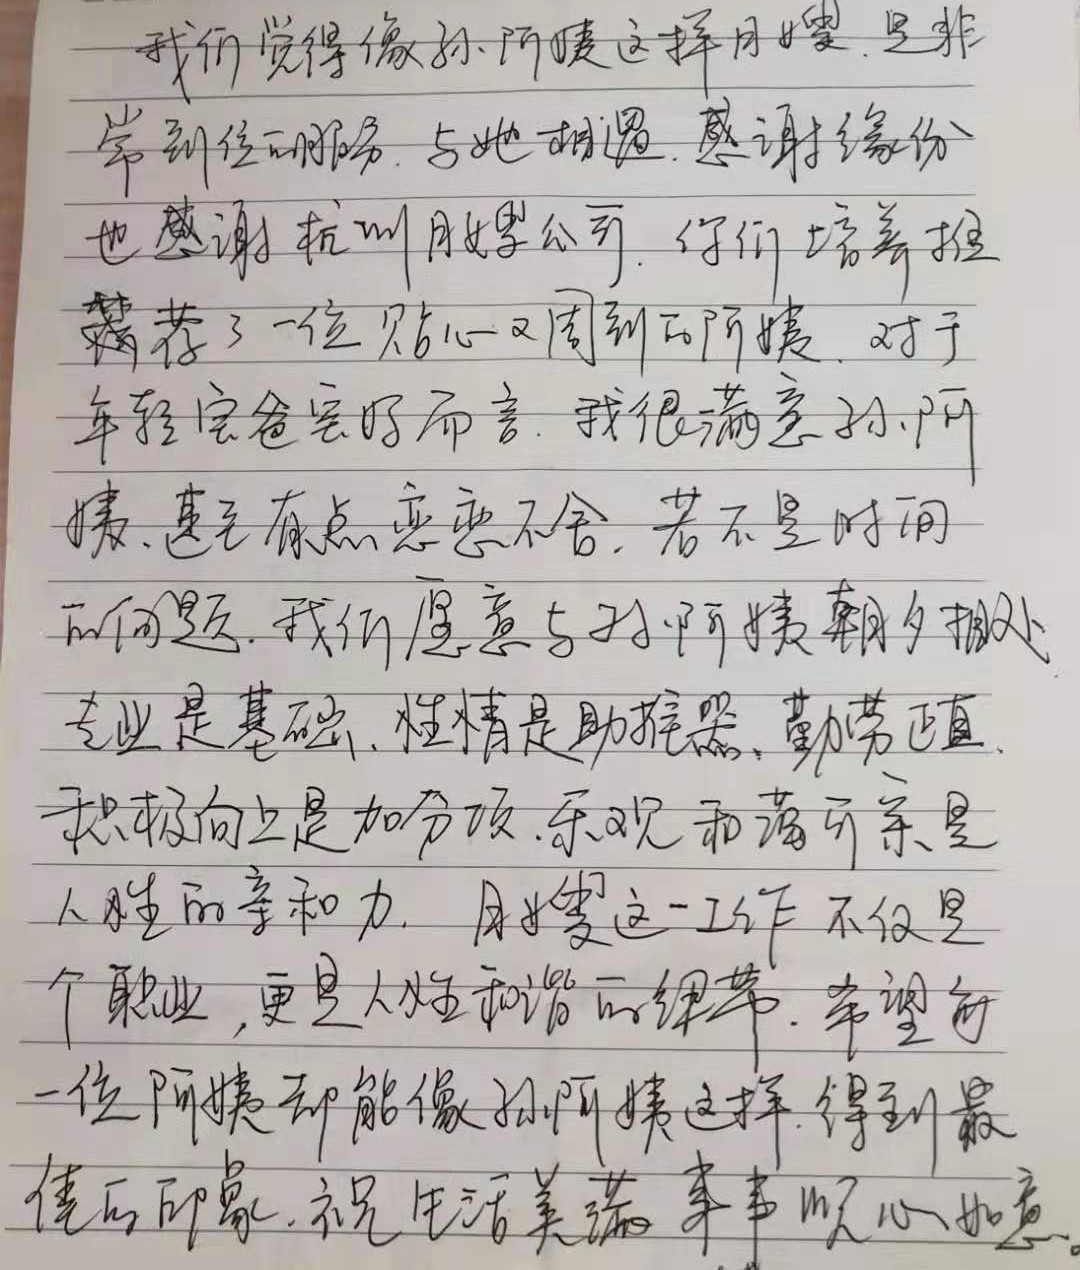 我们觉得像孙阿姨这样月嫂.是非
常到位的服务.与她相遇.感谢缘份
也感谢杭州月嫂公司.你们培养推
荐了一位贴心又周到的阿姨.对于
年轻宝爸宝妈而言.我很满意孙阿
姨、甚至有点恋恋不舍.若不是时间
的问题.我们愿意与孙阿姨朝夕相处、
专业是基础、性情是助推器、勤劳正直.
积极向上是加分项.乐观和蔼可亲是
人性的亲和力.月嫂这一工作不仅是
个职业,更是人性和谐的纽带.希望每
一位阿姨都能像孙阿姨这样.得到最
佳的印象.祝生活美满事事顺心如意。